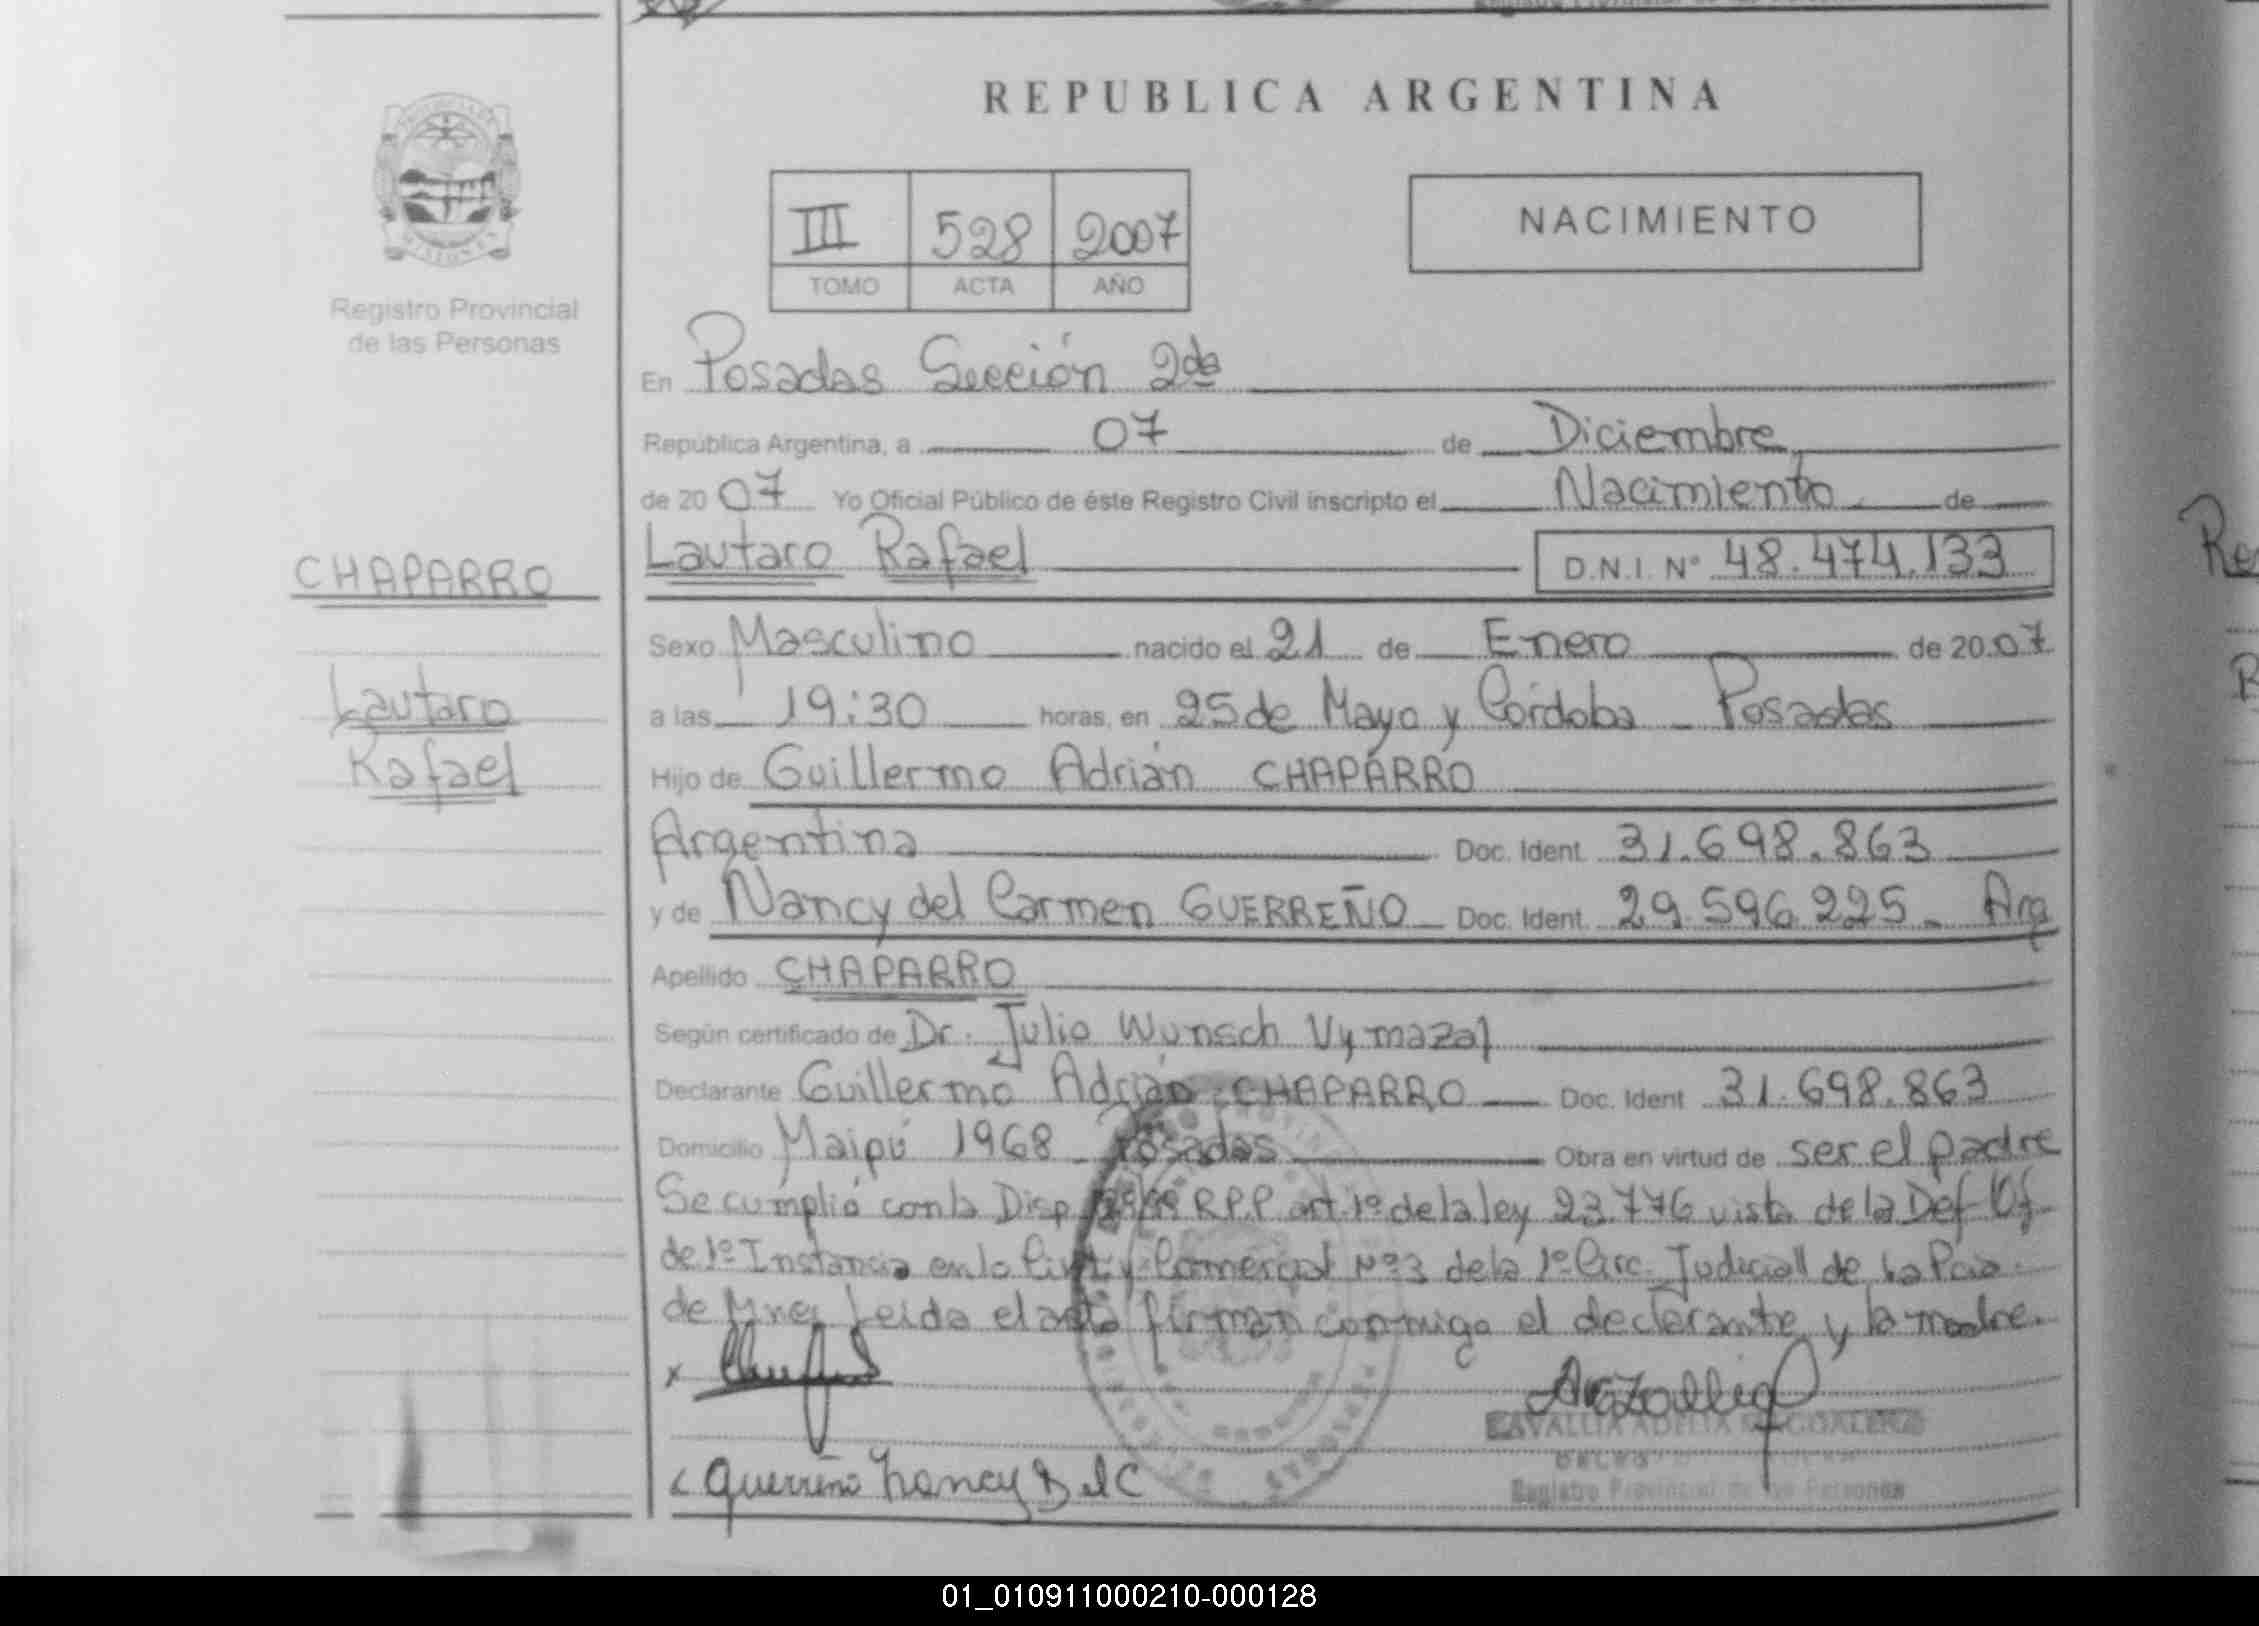 REPUBLICA ARGENTINA
III 528 2007
TOMO ACTA AÑO
NACIMIENTO
Registro Provincial
de las Personas
CHAPARRO
Lautaro
Rafael
En Posadas Sección 2da
República Argentina, a 07 de Diciembre
de 2007 Yo Oficial Público de éste Registro Civil inscripto el Nacimiento de
Lautaro Rafael D.N.I. Nº 48.474.133
Sexo Masculino nacido el 21 de Enero de 2007
a las 19:30 horas, en 25 de Mayo y Córdoba - Posadas
Hijo de Guillermo Adrián CHAPARRO
Argentina Doc. Ident. 31.698.863
y de Nancy del Carmen GUERREÑO Doc. Ident. 29.596.225 - Arg
Apellido CHAPARRO
Según certificado de Dr. Julio Wunsch Vymazal
Declarante Guillermo Adrián CHAPARRO Doc. Ident 31.698.863
Domicilio Maipú 1968 - Posadas Obra en virtud de ser el padre
Se cumplió con la Disp R.P.P art. 1º de la ley 23.776 vista de la Def Of
de 1º Instancia en lo Civil y Comercial Nº 3 de la 1º Circ. Judicial de la Pcia
de Mnes Leida el acta firman conmigo el declarante y la madre.
x
Guerreño Nancy Del C
Registro Provincial de las Personas
01_010911000210-000128